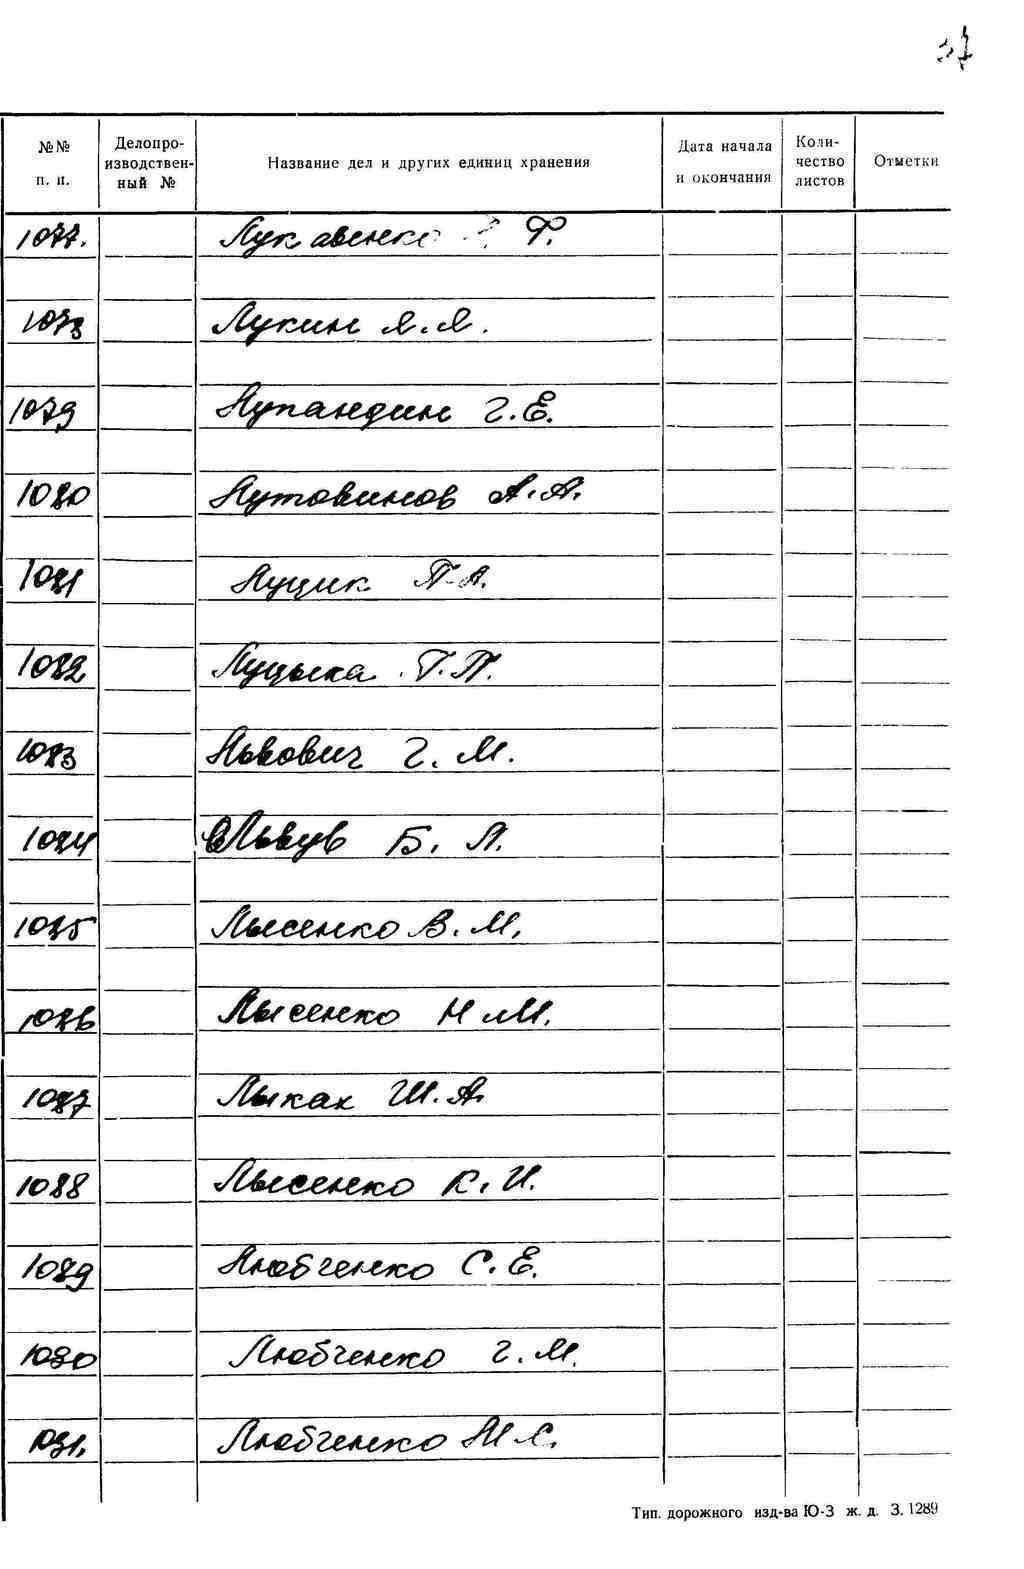 37
№№ п. п. Делопроизводственный № Название дел и других единиц хранения Дата начала и окончания Количество листов Отметки
1077. Лукавенко Ф.
1078 Лукин Я.Я.
1079 Лупандин Г.Е.
1080 Лутовинов А.А.
1081 Луцик П.А.
1082 Луцыка Г.П.
1083 Львович Г.М.
1084 Львув Б.Л.
1085 Лысенко В.М.
1086 Лысенко Н.М.
1087 Лыкак Ш.А.
1088 Лысенко К.И.
1089 Любченко С.Е.
1090 Любченко Г.М.
1091. Любченко М.С.
Тип. дорожного изд-ва Ю-З ж. д. З. 1289